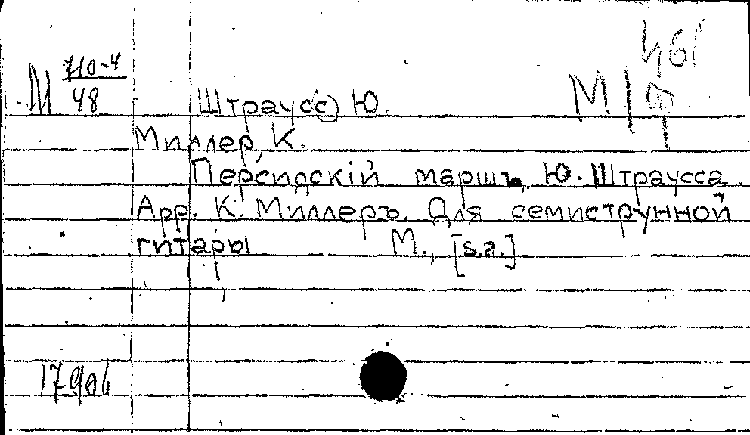 М 710-4
48
Штраус(с) Ю.
М/ф
Миллер, К.
Персидскій маршъ Ю. Штраусса.
Арр. К. Миллеръ. Для семиструнной
гитары М., [s.a.]